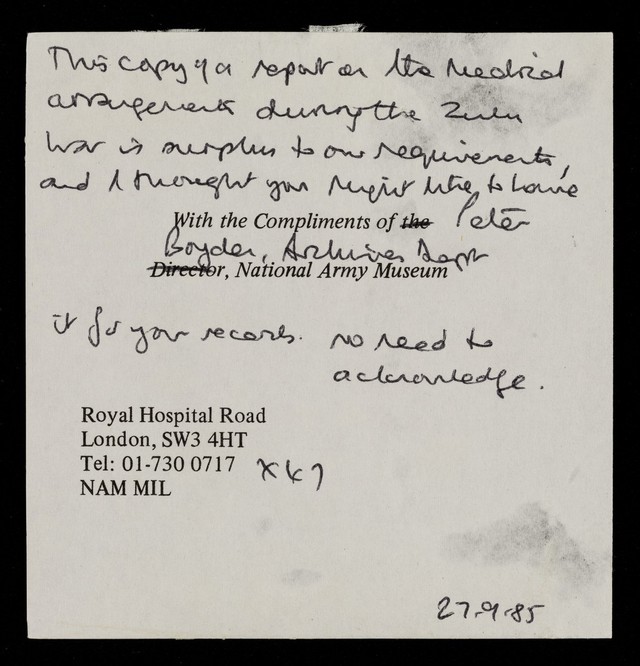 This copy of a report on the Medical
arrangements during the Zulu
War is surplus to our requirements,
and I thought you might like to have
With the Compliments of the Peter
Boyden, Archives Dept
Director, National Army Museum
it for your records. No need to
acknowledge.
Royal Hospital Road
London, SW3 4HT
Tel: 01-730 0717 x47
NAM MIL
27.9.85